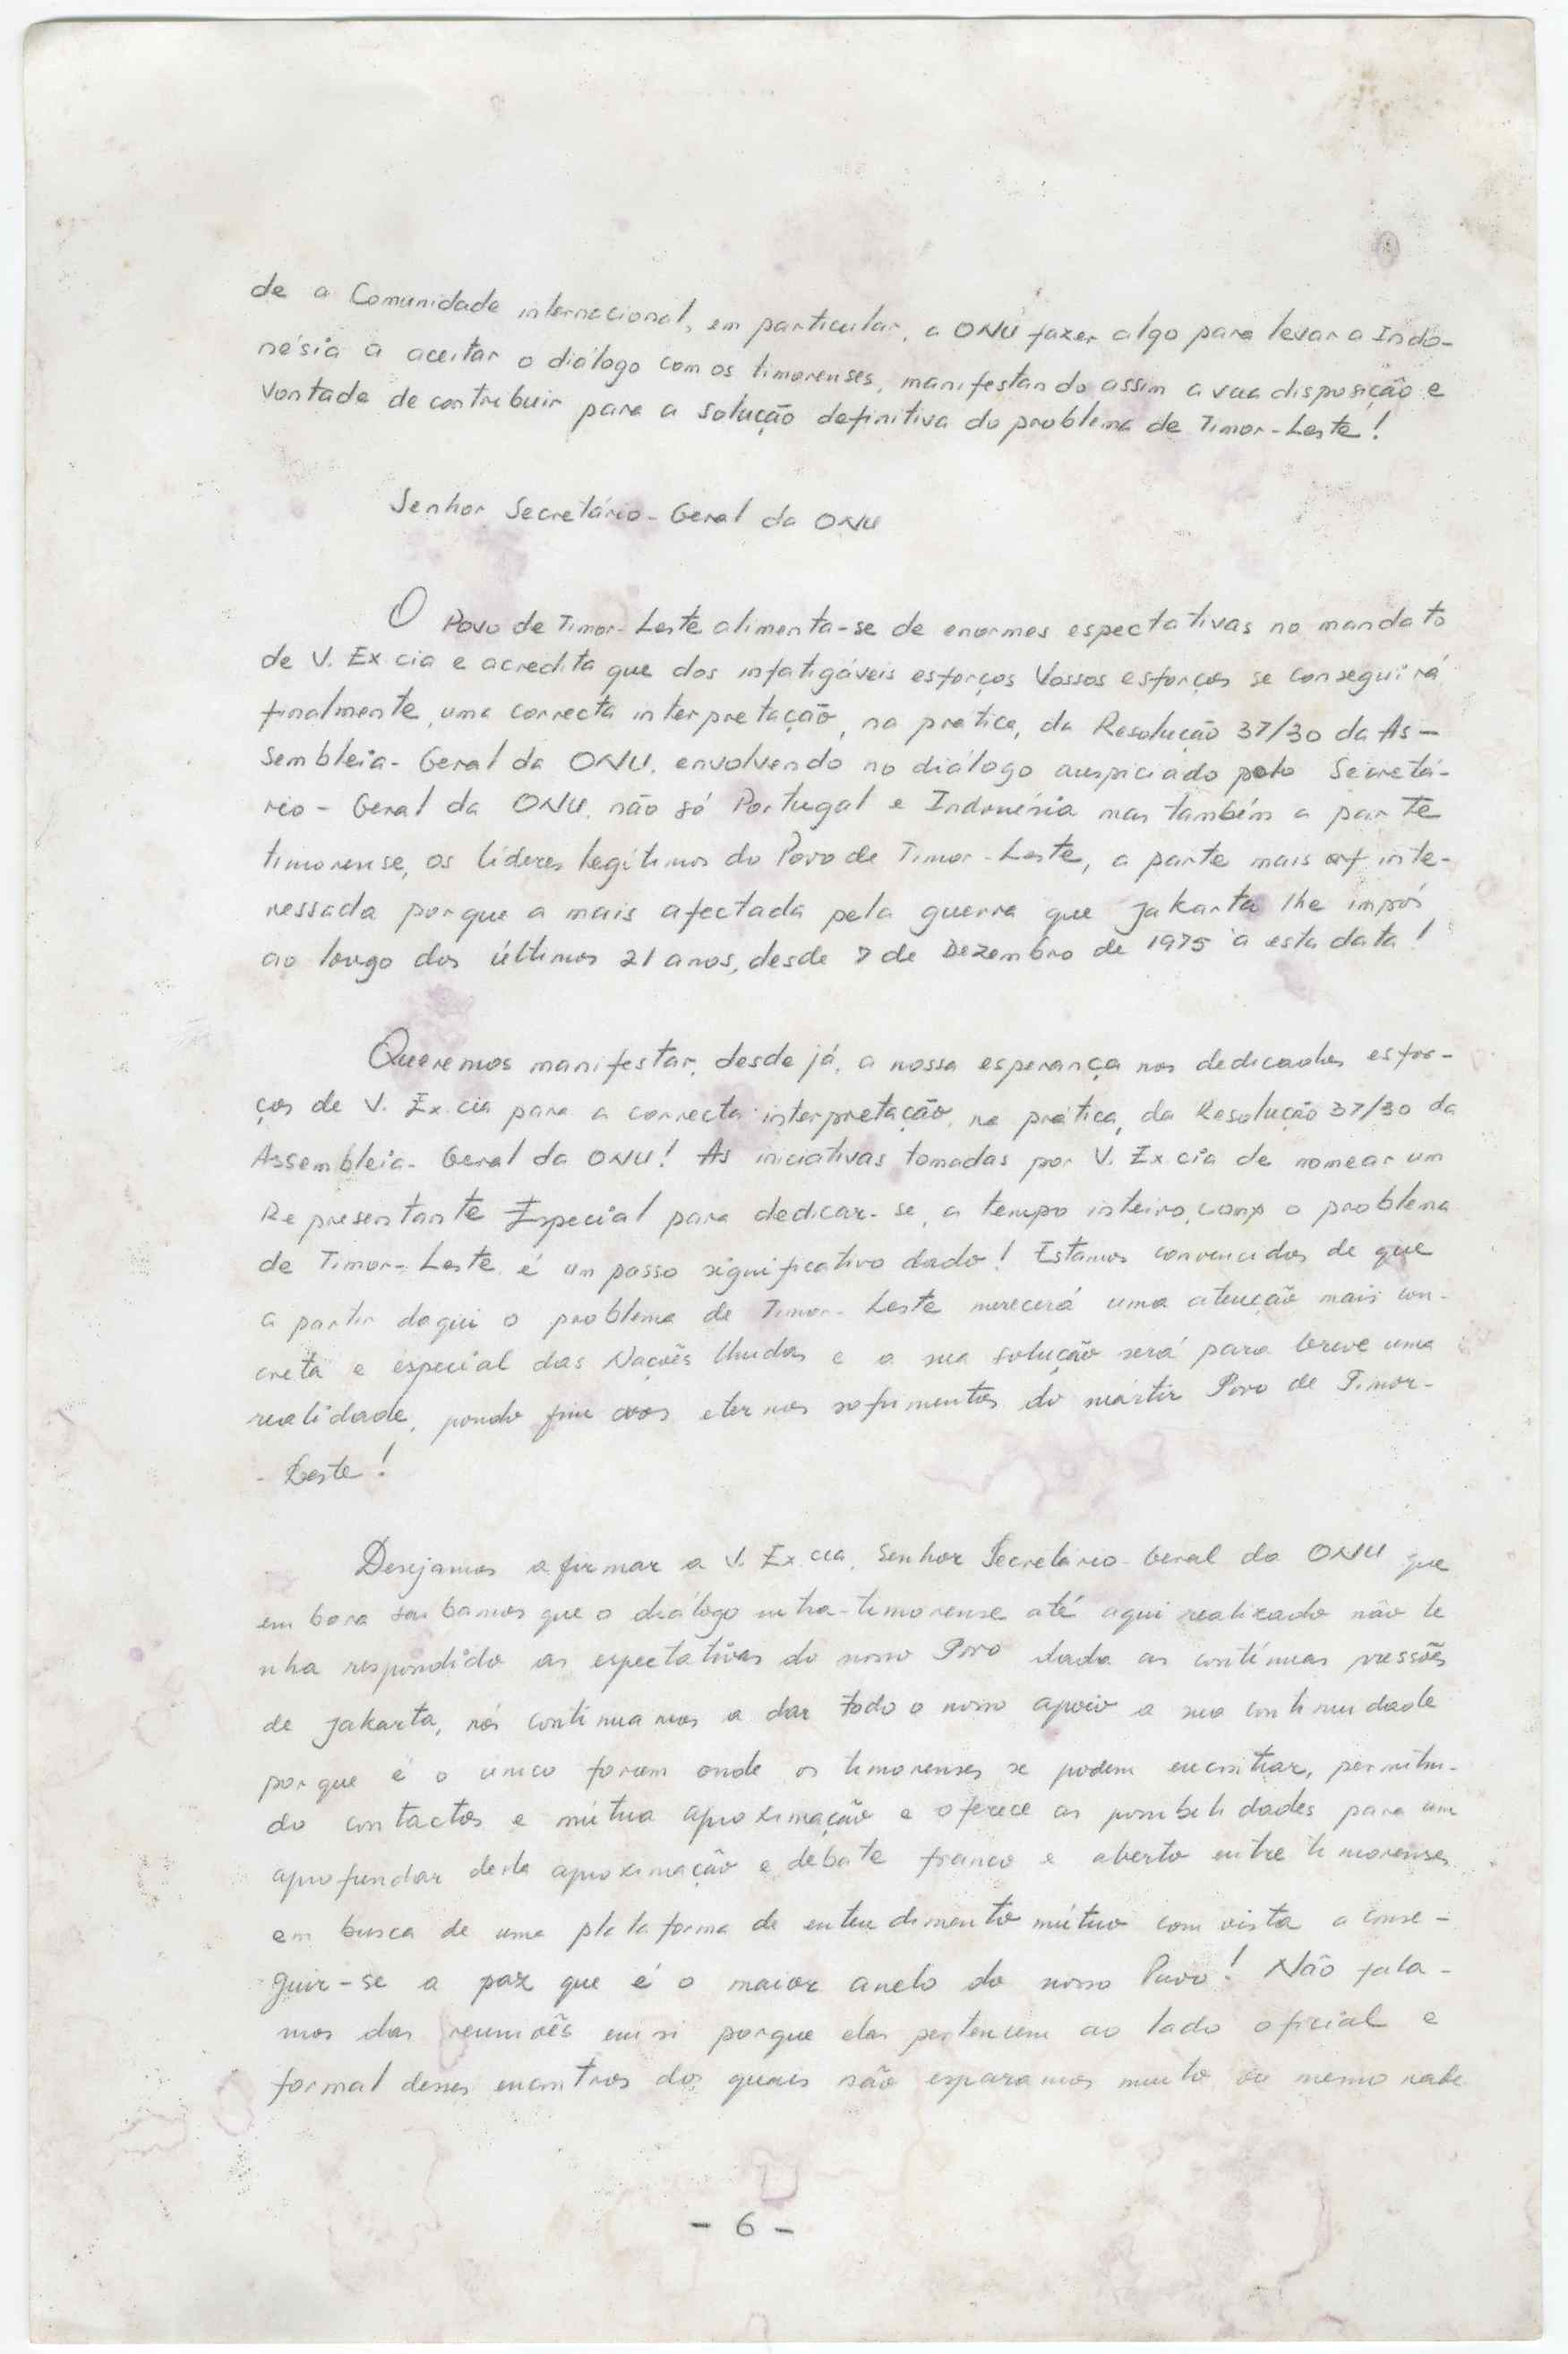 de a Comunidade internacional, em particular, a ONU fazer algo para levar a Indo-
nésia a aceitar o diálogo com os timorenses, manifestando assim a sua disposição e
vontade de contribuir para a solução definitiva do problema de Timor-Leste!
Senhor Secretário-Geral da ONU
O Povo de Timor-Leste alimenta-se de enormes espectativas no mandato
de V. Ex cia e acredita que dos infatigáveis esforços Vossos esforços se conseguirá
finalmente, uma correcta interpretação, na prática, da Resolução 37/30 da As-
sembleia-Geral da ONU, envolvendo no diálogo auspiciado pelo Secretá-
rio-Geral da ONU, não só Portugal e Indonésia mas também a parte
timorense, os líderes legítimos do Povo de Timor-Leste, a parte mais inte-
ressada porque a mais afectada pela guerra que Jakarta lhe impôs
ao longo dos últimos 21 anos, desde 7 de Dezembro de 1975 a esta data!
Queremos manifestar, desde já, a nossa esperança nos dedicados esfor-
ços de V. Ex.cia para a correcta interpretação, na prática, da Resolução 37/30 da
Assembleia-Geral da ONU! As iniciativas tomadas por V. Ex cia de nomear um
Representante Especial para dedicar-se, a tempo inteiro, com o problema
de Timor-Leste, é um passo significativo dado! Estamos convencidos de que
a partir daqui o problema de Timor-Leste merecerá uma atenção mais con-
creta e especial das Nações Unidas e a sua solução será para breve uma
realidade, pondo fim aos eternos sofrimentos do mártir Povo de Timor-
-Leste!
Desejamos afirmar a V. Ex cia, Senhor Secretário-Geral da ONU que
embora saibamos que o diálogo intra-timorense até aqui realizado não te
nha respondido as espectativas do nosso Povo dada as contínuas pressões
de Jakarta, nós continuamos a dar todo o nosso apoio a sua continuidade
porque é o único forum onde os timorenses se podem encontrar, permitin-
do contactos e mútua aproximação e oferece as possibilidades para um
aprofundar desta aproximação e debate franco e aberto entre timorenses
em busca de uma plataforma de entendimento mútuo com vista a conse-
guir-se a paz que é o maior anelo do nosso Povo! Não fala-
mos das reuniões em si porque elas pertencem ao lado oficial e
formal desses encontros dos quais não esperamos muito ou mesmo nada
- 6 -